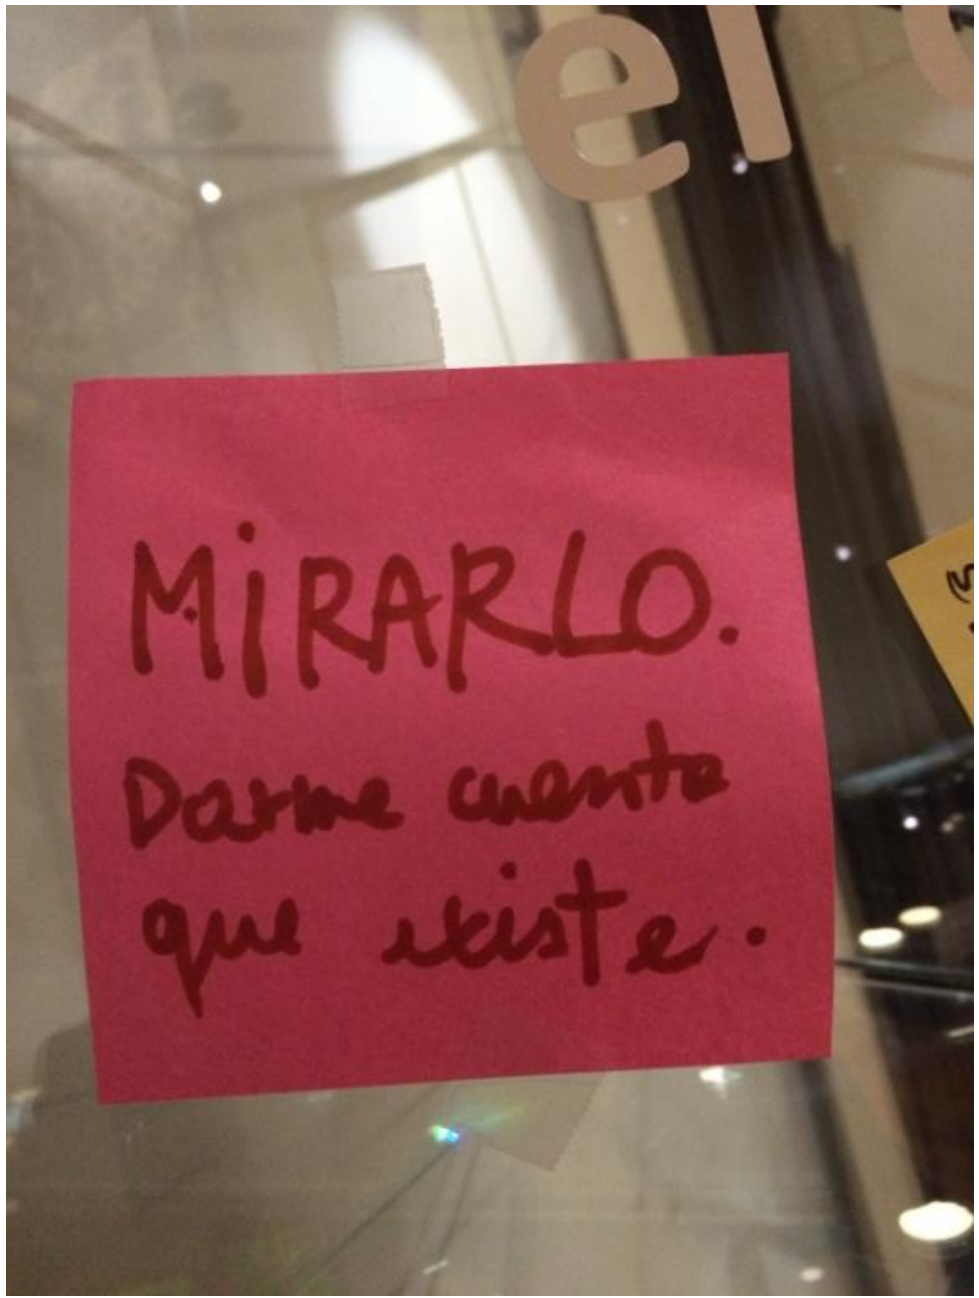 el
MiRARLO.
Darme cuenta
que existe.